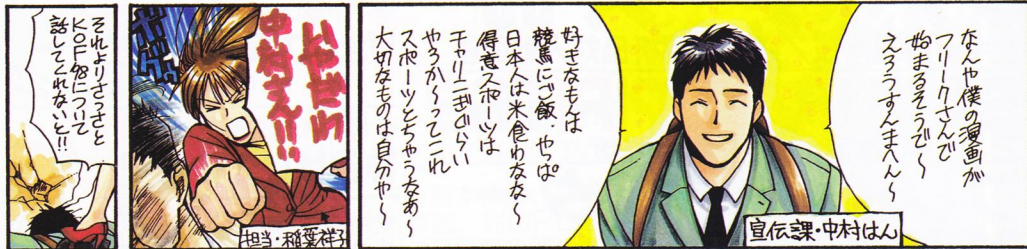 なんや僕の漫画が
フリークさんで
始まるそうで〜
えろうすんまへん〜
好きなもんは
競馬にご飯、やっぱ
日本人は米食わなな〜
得意スポーツは
チャリこぎぐらい
やろか〜ってこれ
スポーツとちゃうなぁ〜
大切なものは自分や〜
宣伝課・中村はん
いやだわ
中村さん!!
担当・稲葉祥子
それよりさっさと
KOF98について
話してくれないと!!